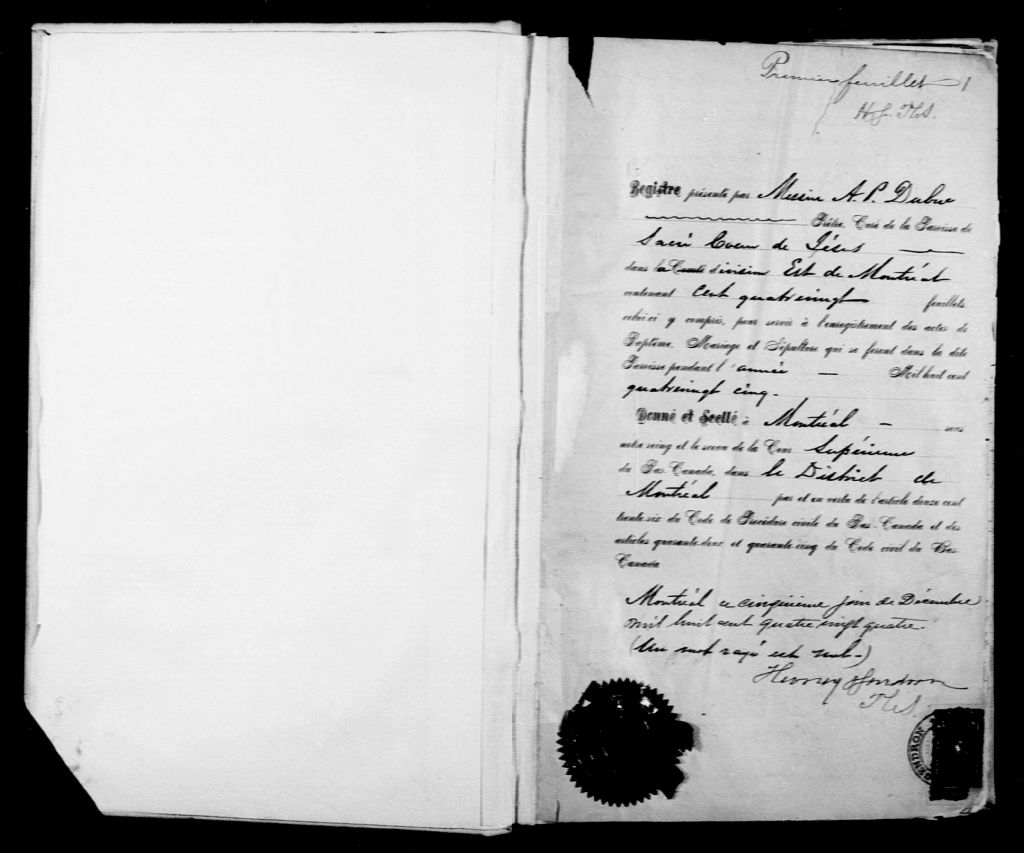 Premier feuillet 1
H. G. Tel S.
Registre présenté par Messire A. P. Dubuc
Prêtre, Curé de la Paroisse de
Sacré Coeur de Jésus
dans la Comté division Est de Montréal
contenant cent quatrevingt feuillets
celui-ci y compris, pour servir à l'enregistrement des actes de
Baptême, Mariage et Sépulture qui se feront dans la dite
Paroisse pendant l'année Mil huit cent
quatrevingt cinq.
Donné et Scellé à Montréal sous
notre seing et le sceau de la Cour Supérieure
du Bas-Canada, dans le District de
Montréal par et en vertu de l'article douze cent
trente-six du Code de Procédure civile du Bas-Canada et des
articles quarante-deux et quarante-cinq du Code civil du Bas-
Canada
Montréal ce cinquième jour de Décembre
mil huit cent quatre vingt quatre.
(Un mot rayé est nul.)
Henry Gendron
GENDRON